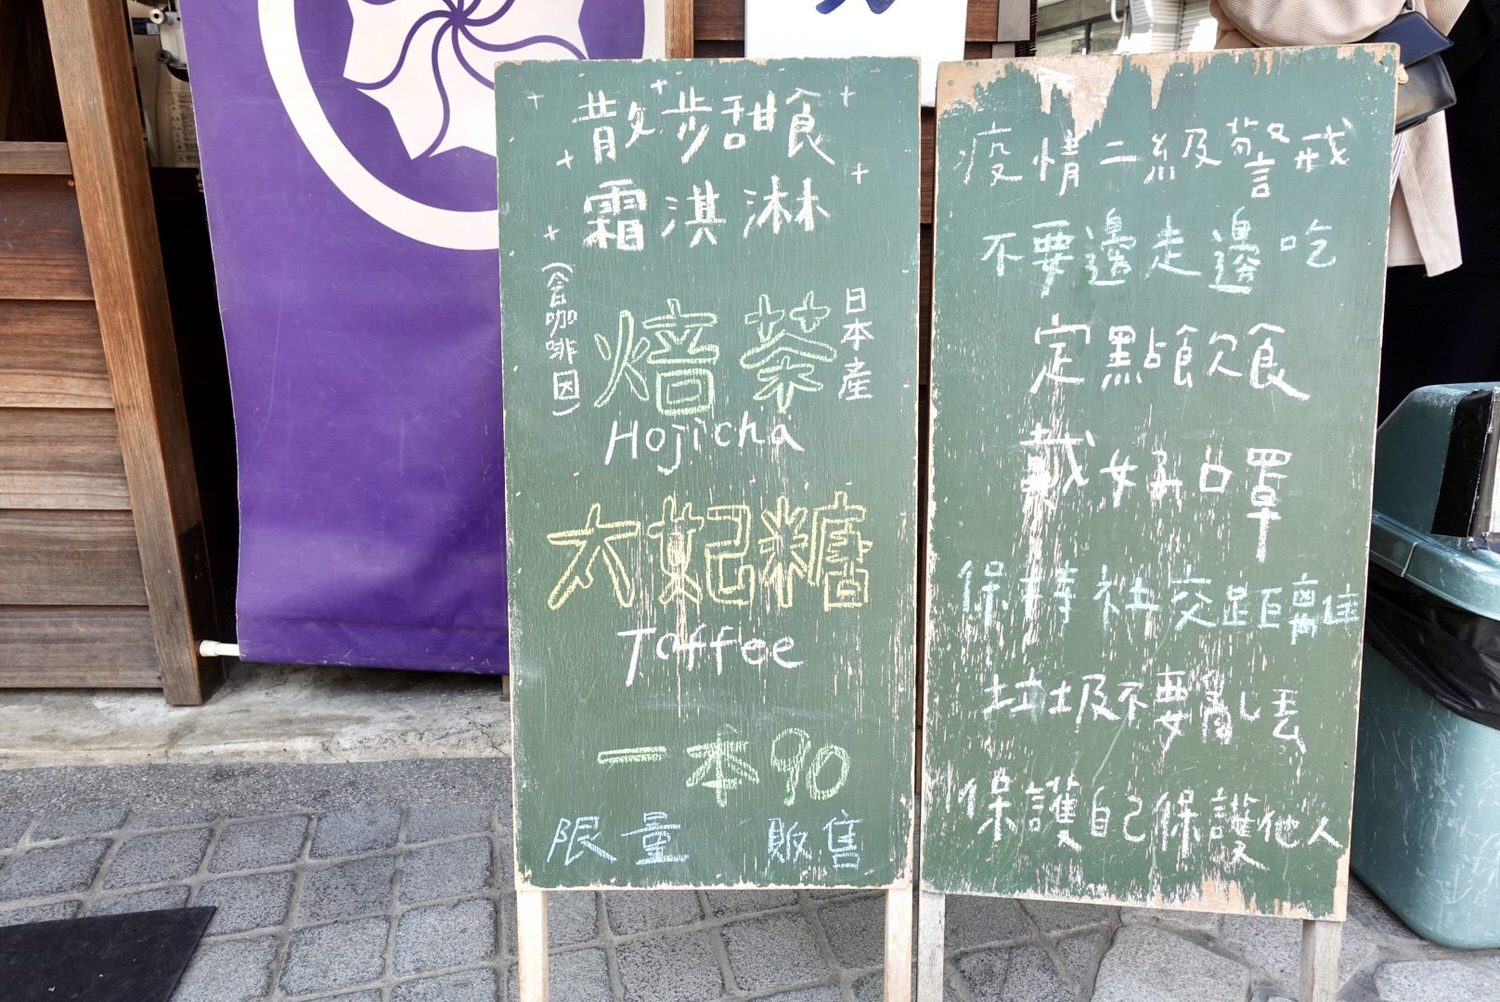 散步甜食
霜淇淋
(含咖啡因)
焙茶
日本產
Hojicha
太妃糖
Toffee
一本90
限量 販售
疫情二級警戒
不要邊走邊吃
定點飲食
戴好口罩
保持社交距離
垃圾不要亂丟
保護自己保護他人